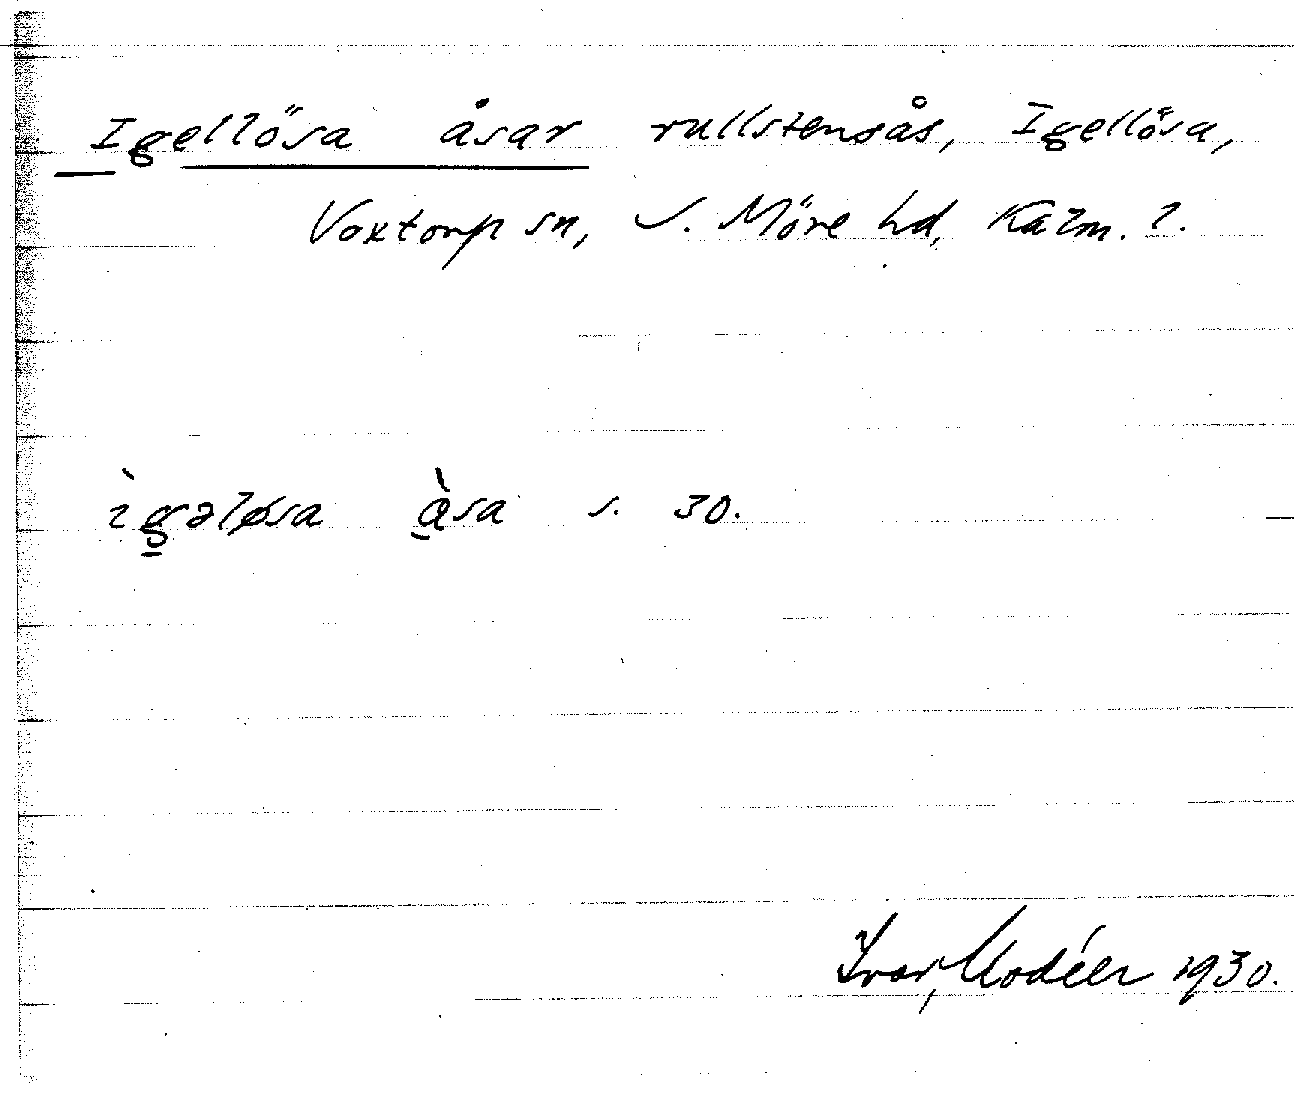 Igellösa åsar rullstensås, Igellösa,
Voxtorp sn, S. Möre hd, Kalm. l.
ìgəløsa àsa s. 30.
Ivar Modéer 1930.